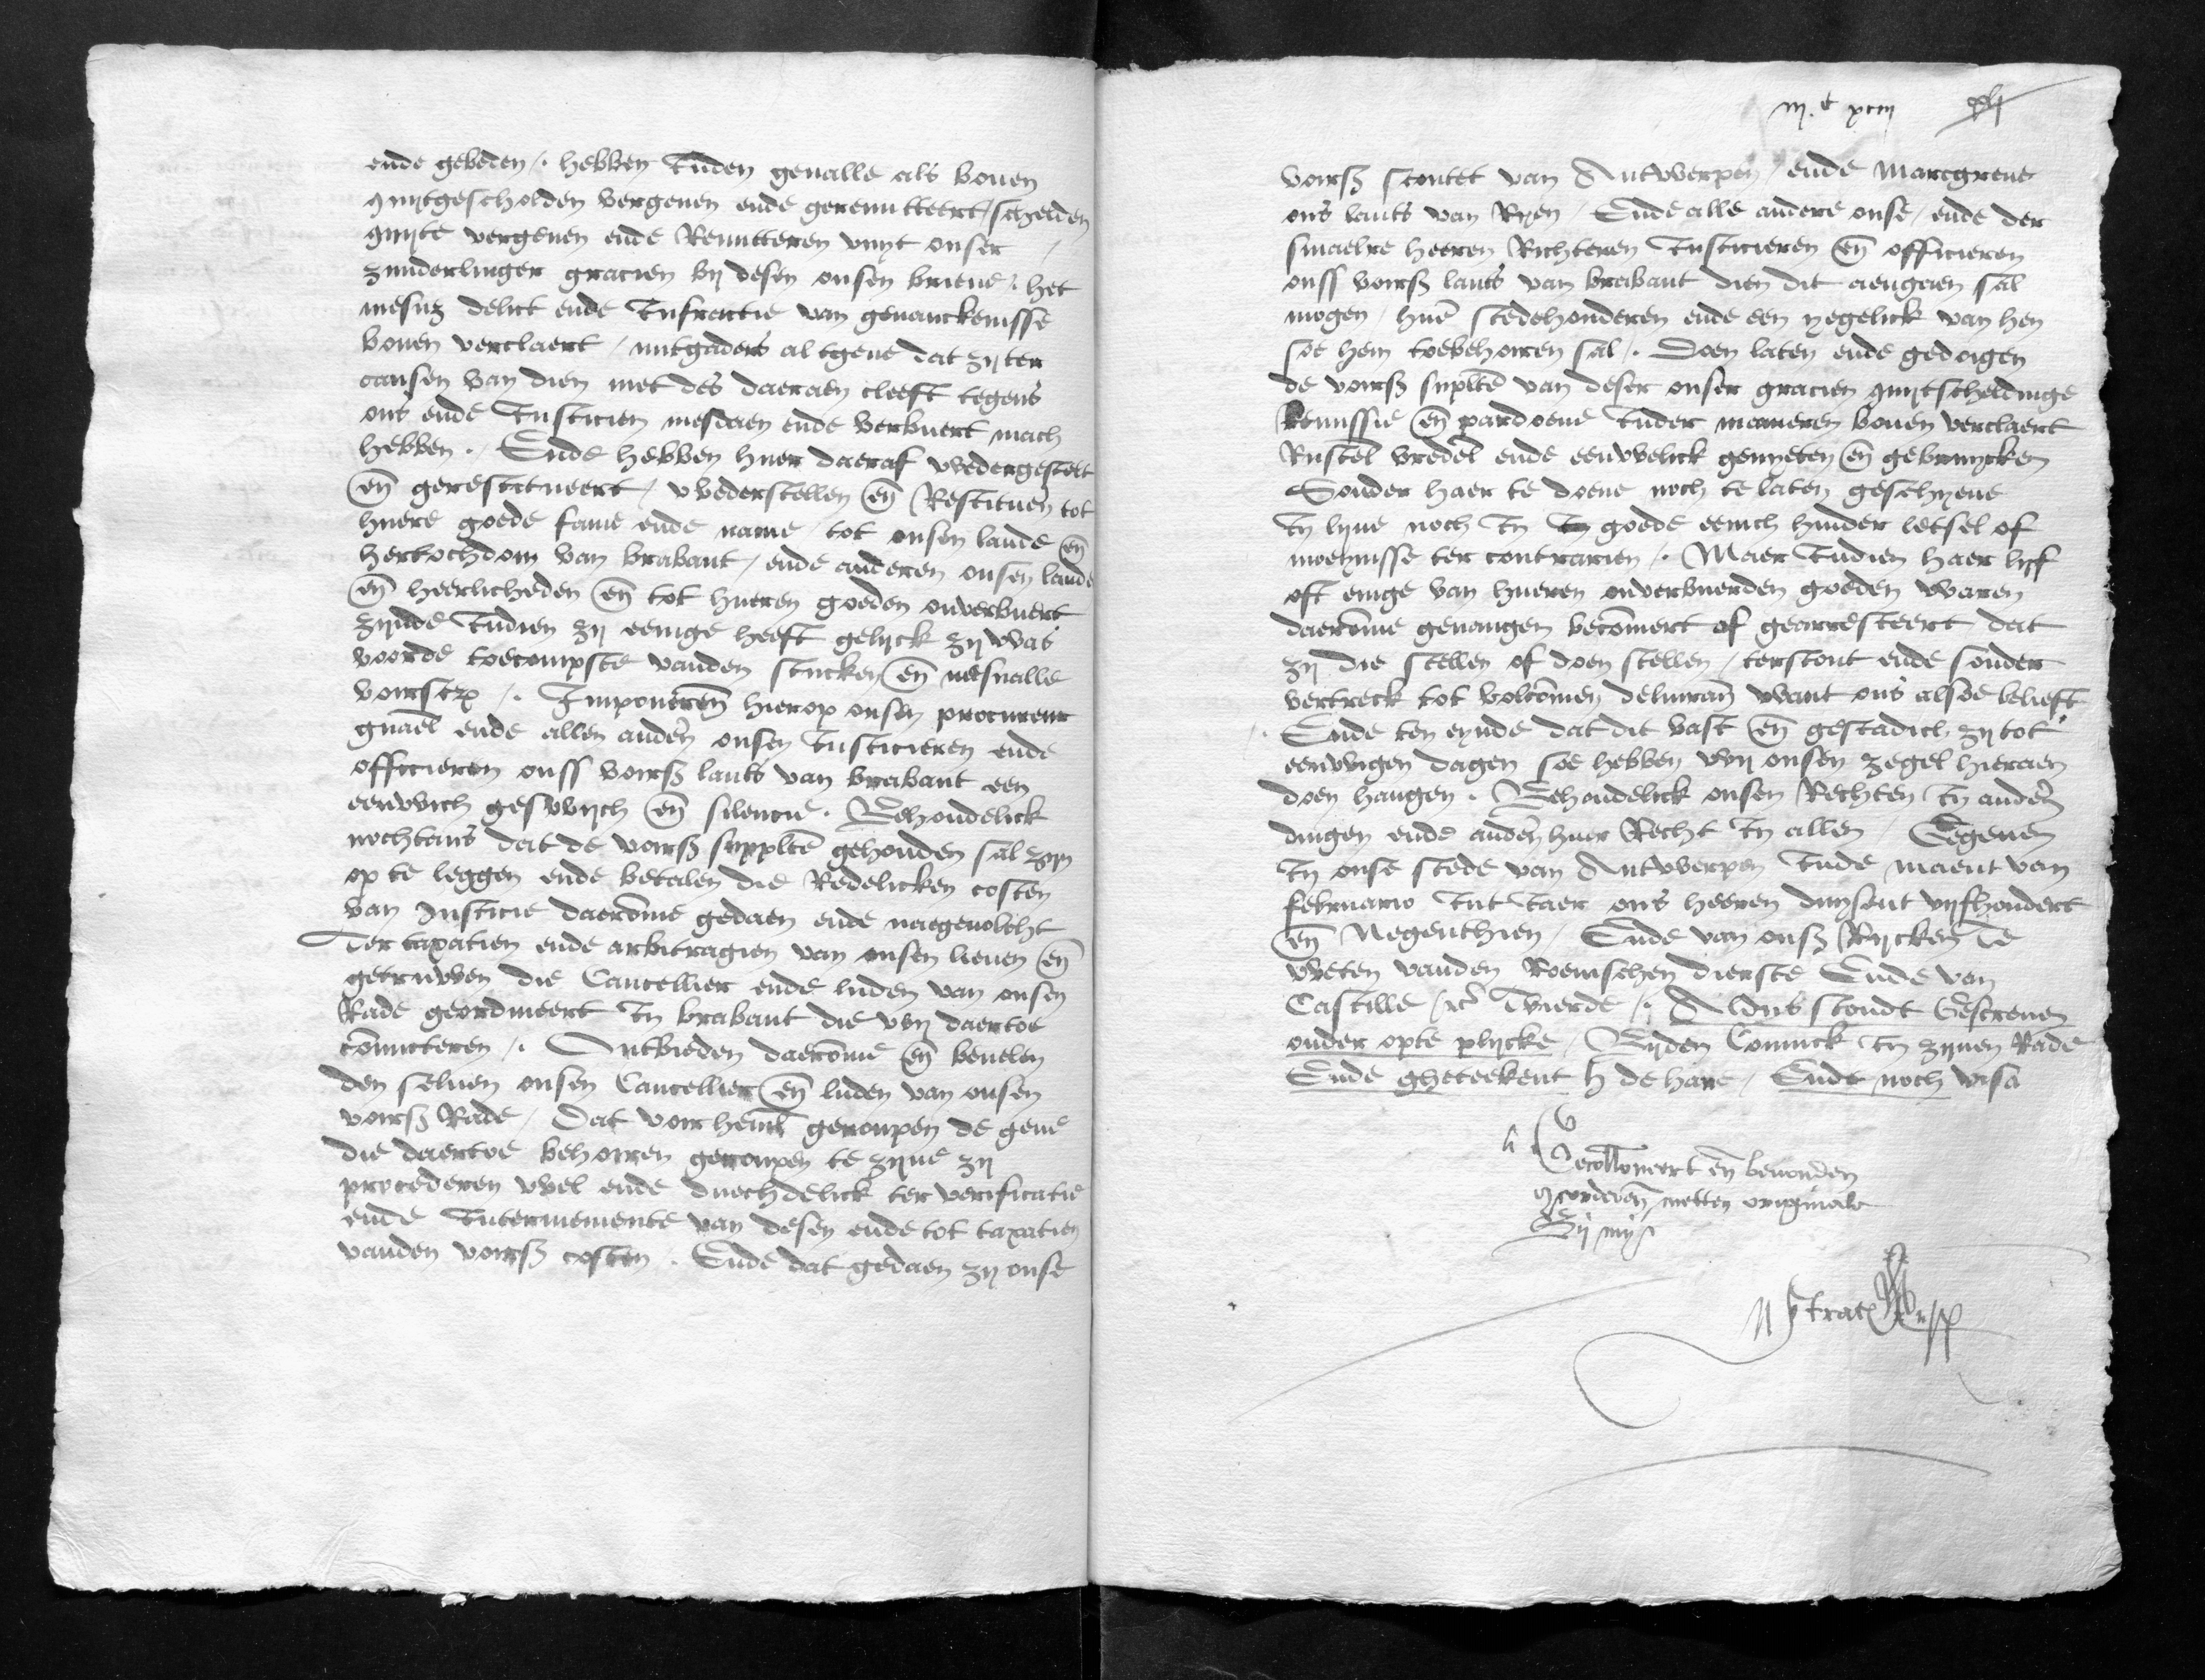 ende gebeden /. hebben Inden gevalle als boven
quytgescholden vergeven ende geremitteert / schelden
quyte vergeven ende Remitteren vuyt onser
zunderlinger gracien by desen onsen brieve / het
mesus delict ende Infractie van gevanckenisse
boven verclaert / mitgaders al tgene dat zy ter
causen van dien met des daeraen cleeft tegens
ons ende Justicien mesdaen ende verbuert mach
hebben . / Ende hebben huer daeraf wedergestelt
en̄ gerestitueert / wederstellen en̄ Restituen tot
huere goede fame ende name / tot onsen lande en̄
hertochdom van brabant / ende anderen onsen lande
en̄ heerlicheden en̄ tot hueren goeden onverbuert
zynde Indien zy eenige heeft gelyck zy was
voorde toecompste vanden stucken en̄ mesvalle
voirscr /. Imponeren̄ hierop onsen procureur
gn̄ael ende allen ander̄ onsen Justicieren ende
officieren onss voirß lants van brabant een
eewich geswych en̄ silencie . Behoudelick
nochtans dat de voirß supplte̅ gehouden sal zyn
op te leggen ende betalen die Redelicken costen
van Justicie daero̅me gedaen ende naegevolcht
Ter taxatien ende arbitragien van onsen lieven en̄
getruwen die Cancellier ende luden van onsen
Rade geordineert In brabant die wy daertoe
co̅mitteren /. Ontbieden daero̅me en̄ bevelen
den selven onsen Cancellier en̄ luden van onsen
voirß Rade / Dat voir heml̄ geroupen de gene
die daertoe behoiren geroupen te zyne zy
procederen wel ende duechdelick ter verificatie
ende Interinemente van desen ende tot taxatien
vanden voirß costen . Ende dat gedaen zy onse
iij.c xciij
voirß scoutet van Antwerpen / ende Marcgreve
ons lants van Ryen / Ende alle andere onse / ende der
smaelre heeren Richteren Justicieren en̄ officieren
onss voirß lants van brabant dien dit aengaen sal
mogen / huer̄ stedehouderen ende een yegelick van hen
soe hem toebehoiren sal /. Doen laten ende gedoigen
de voirß supplte̅ van deser onser gracien quytscheldinge
Remissie en̄ pardoene Inder manieren boven verclaert
Rustel̄ vredel̄ ende eewelick genyeten en̄ gebruycken
Sonder haer te doene noch te laten geschyene
In lyve noch In goede eenich hinder letsel of
moeynisse ter contrarien /. Maer Indien haer lyf
oft enige van hueren onverbuerden goeden waren
daero̅me gevangen beco̅mert of gearresteert dat
zy die stellen of doen stellen / terstont ende sonder
vertreck tot volco̅men delivran̄ want ons alsoe belieft
Ende ten eynde dat dit vast en̄ gestadich zy tot
eewigen dagen soe hebben wy onsen zegel hieraen
doen hangen . Behoudelick onsen Rechten In ander̄
dingen ende ander̄ huer Recht In allen / Gegeven
In onse stede van Antwerpen Inde maent van
februario Int Jaer ons heeren duysent vyfhondert
en̄ Negenthien / Ende van onsß Rycken Te
weten vanden Roemschen dierste Ende van
Castille / etc̄ Tvierde /. Aldus stondt Gescreven
onder opte plycke / Byden Coninck In zynen Rade
Ende gheteekent h de hane / Ende noch visa
Gecollationeert en̄ bevonden
accorderen̄ metten originale
By my